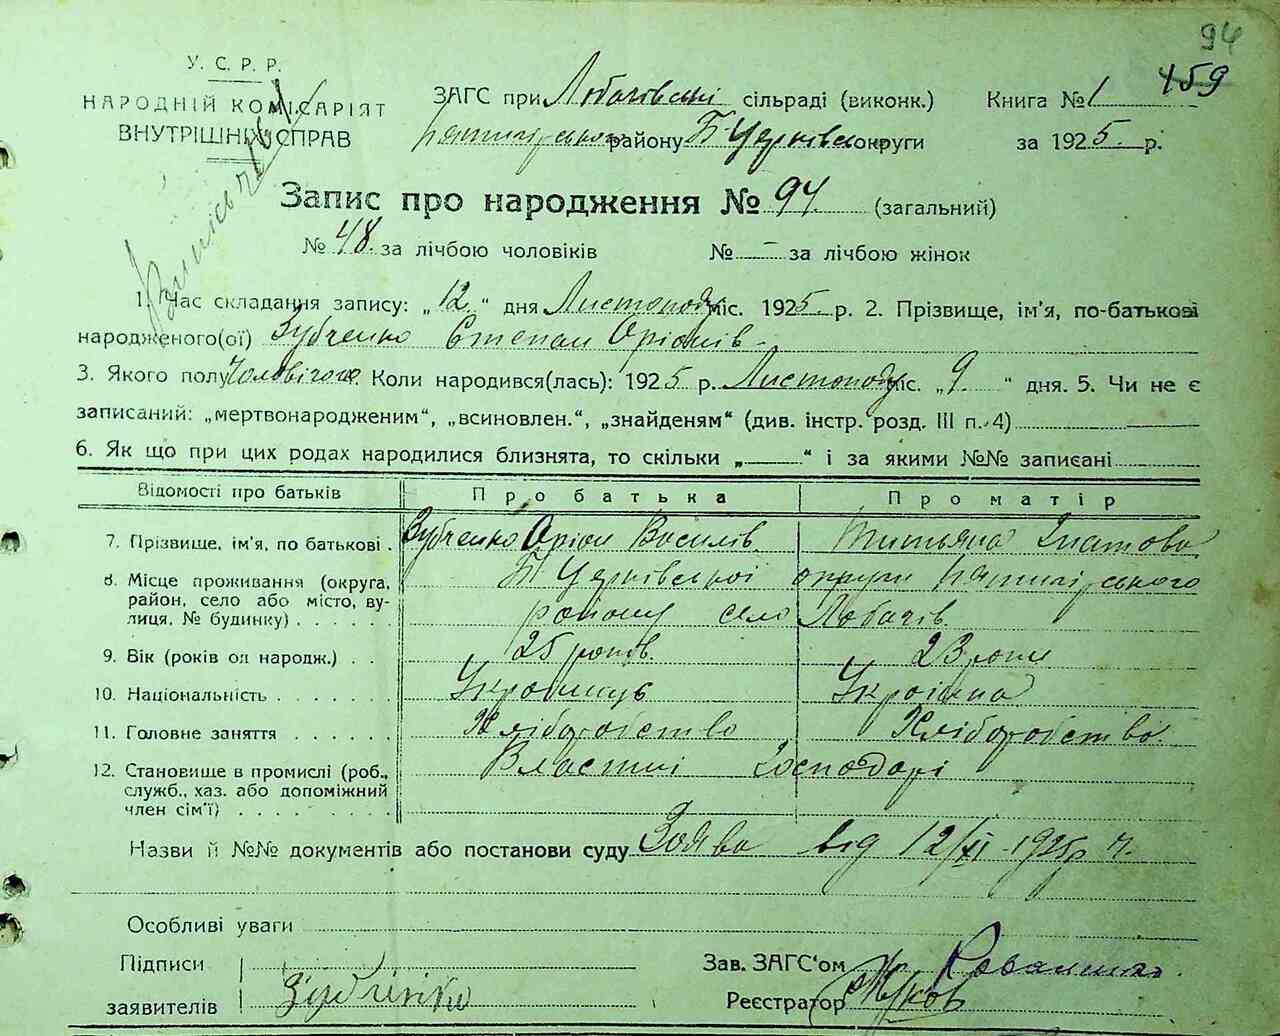 94
159
У. С. Р. Р.
НАРОДНІЙ КОМІСАРІЯТ
ВНУТРІШНІХ СПРАВ
ЗАГС при Лобачівскі сільраді (виконк.) Книга № 1
району Б Церківсько округи за 1925. р.
Запис про народження № 94. (загальний)
№ 48. за лічбою чоловіків № – за лічбою жінок
1. Час складання запису: „12.“ дня Листоподу міс. 1925. р. 2. Прізвище, ім'я, по-батькові
народженого(ої) Зубченко Степан Оріонів
3. Якого полу Чоловічого. Коли народився(лась): 1925 р. Листоподу міс. „9.“ дня. 5. Чи не є
записаний: „мертвонародженим“, „всиновлен.“, „знайденям“ (див. інстр. розд. III п. 4)
6. Як що при цих родах народилися близнята, то скільки „ “ і за якими №№ записані
Відомості про батьків Про батька Про матір
7. Прізвище, ім'я, по батькові . Зубченко Оріон Василів. Титьяна Ігнатова
8. Місце проживання (округа, район, село або місто, вулиця, № будинку) Б Церківської округи
району село Лобачів.
9. Вік (років од народж.) . . 25 років. 23 роки
10. Національність Українець Українка
11. Головне заняття Хліборобство Хліборобство.
12. Становище в промислі (роб., служб., хаз. або допоміжний член сім'ї) Властні Господарі
Назви й №№ документів або постанови суду Заява від 12/XI 1925 р.
Особливі уваги
Підписи
заявителів Зубченко
Зав. ЗАГС'ом
Реєстратор